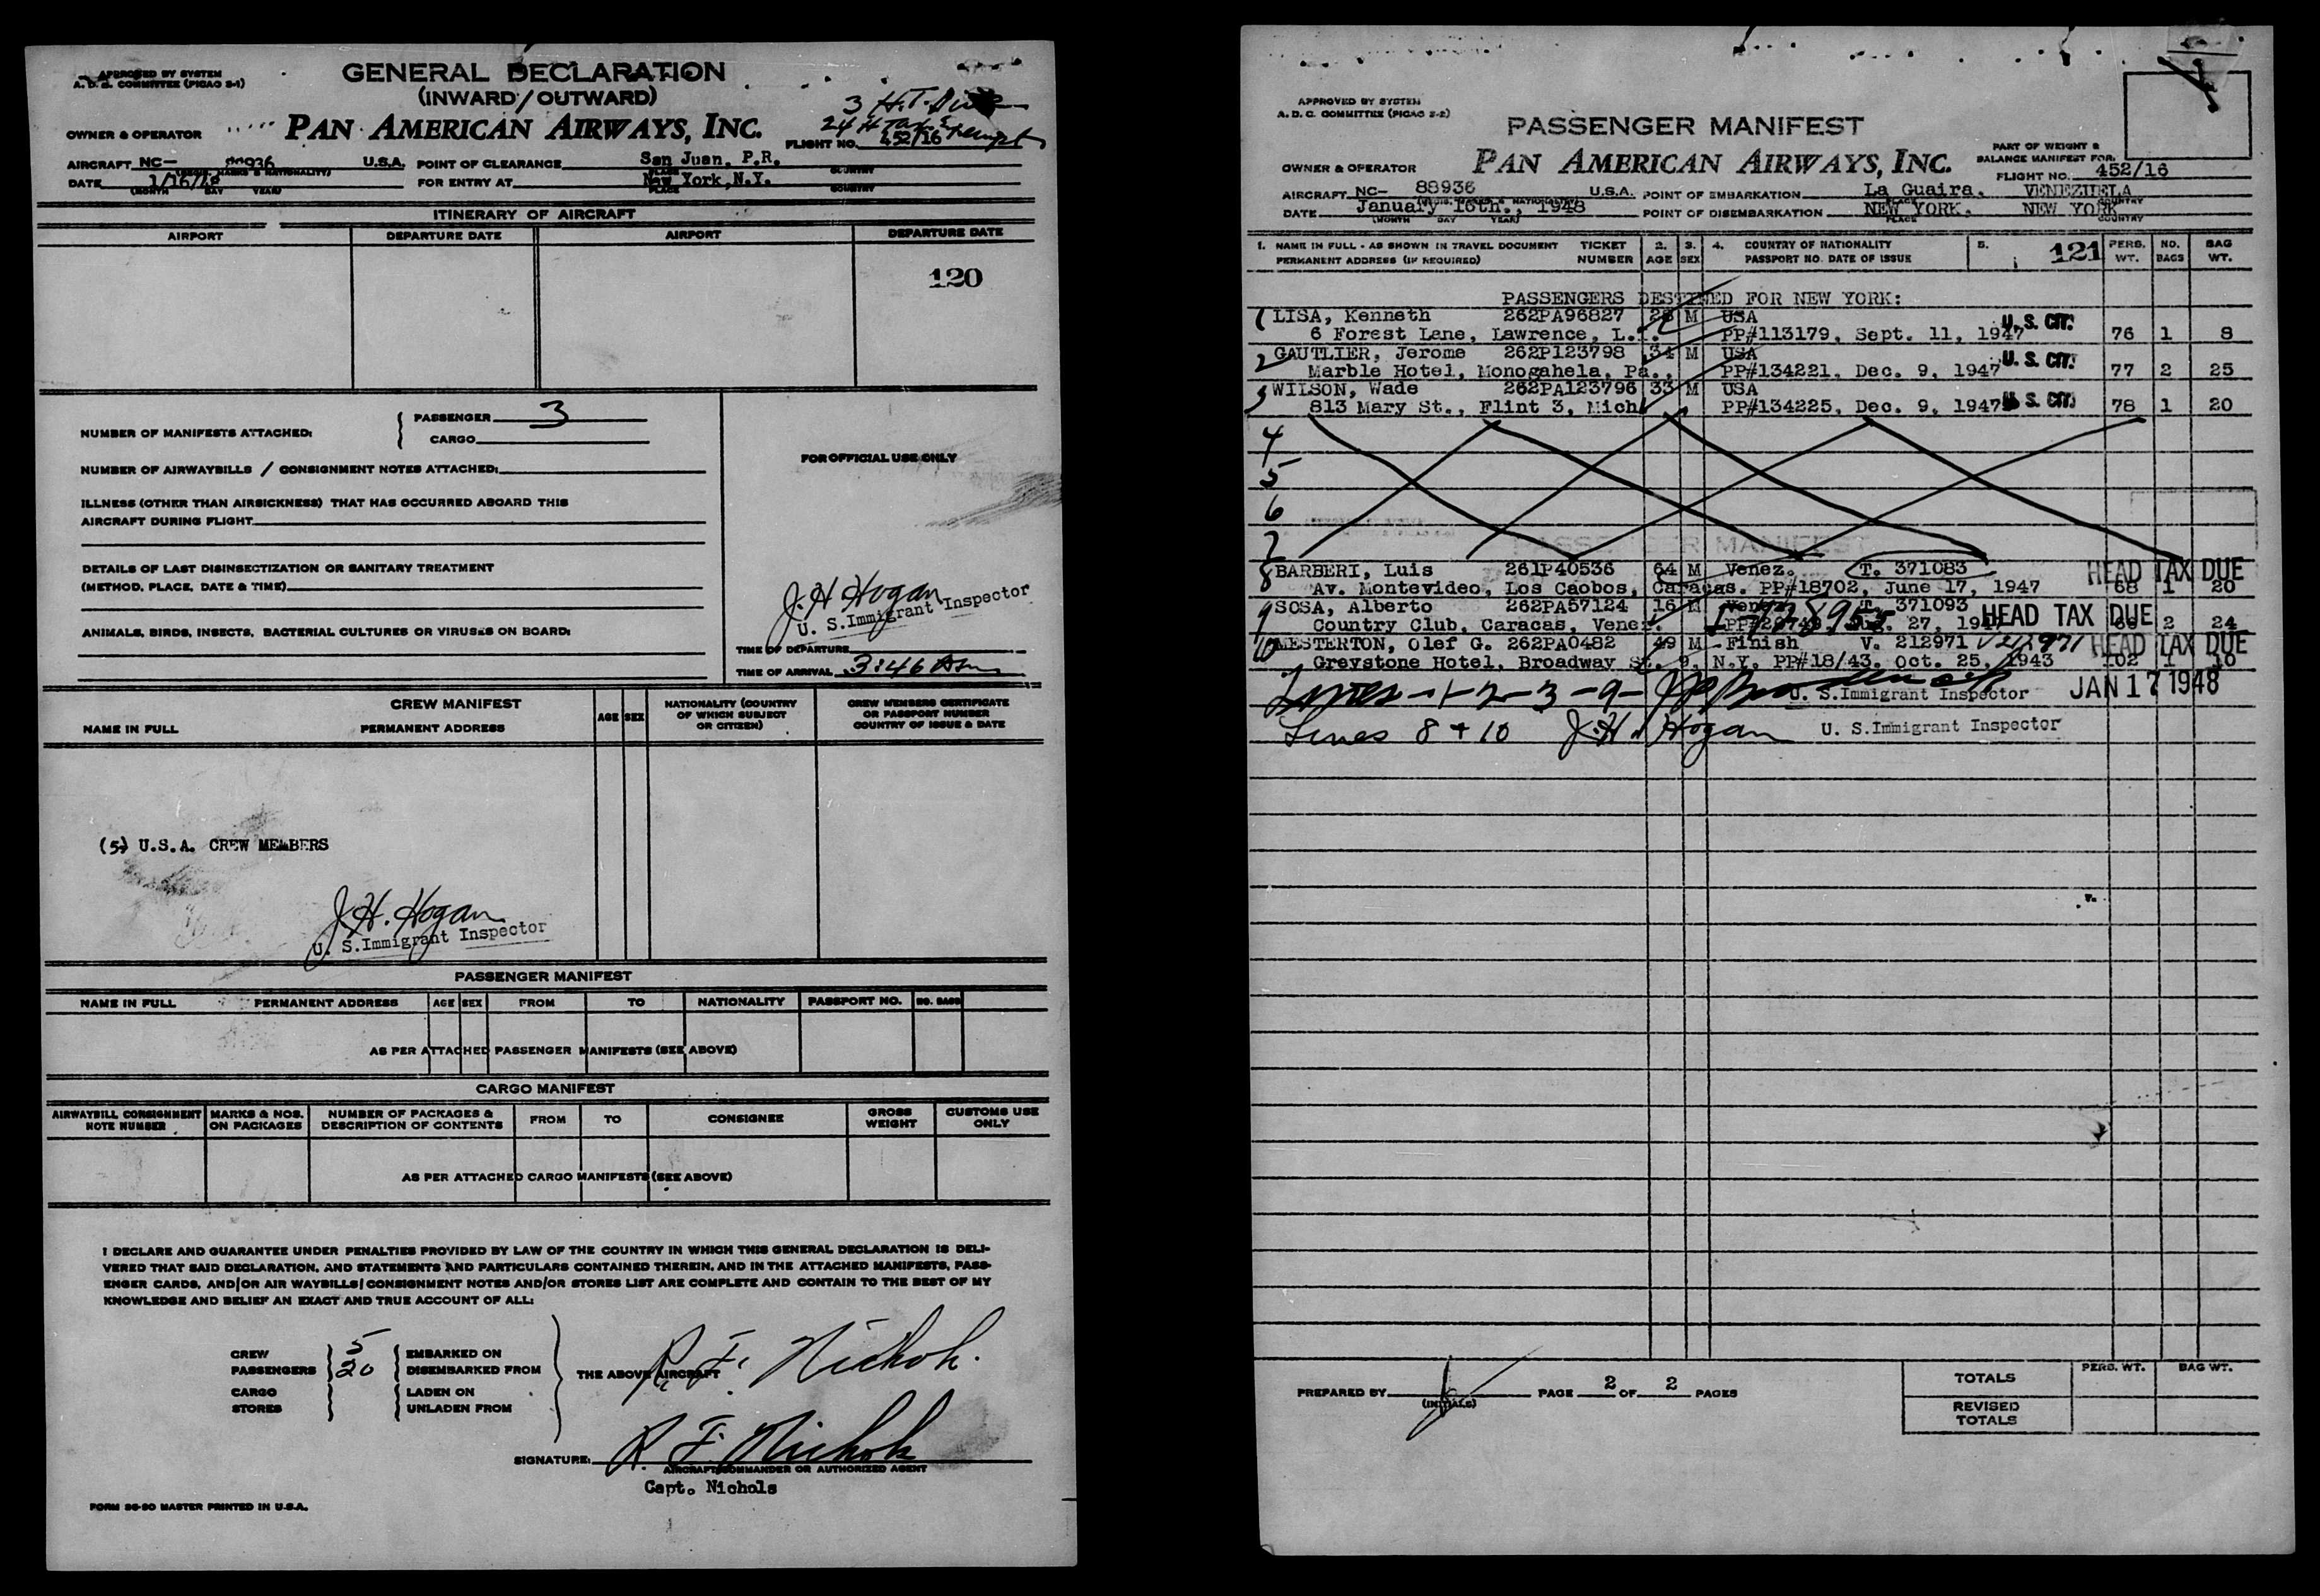 APPROVED BY SYSTEM
A. D. C. COMMITTEE (PICAO S-1)
GENERAL DECLARATION
(INWARD / OUTWARD)
3 H.T.
24 H Tax Exempt
OWNER & OPERATOR PAN AMERICAN AIRWAYS, INC. FLIGHT NO. 452/16
AIRCRAFT NC- 88936 U.S.A. POINT OF CLEARANCE San Juan, P.R.
(REGIS. MARKS & NATIONALITY) PLACE COUNTRY
DATE 1/16/48 FOR ENTRY AT New York, N.Y.
(MONTH DAY YEAR) PLACE COUNTRY
ITINERARY OF AIRCRAFT
AIRPORT DEPARTURE DATE AIRPORT DEPARTURE DATE
120
NUMBER OF MANIFESTS ATTACHED: PASSENGER 3
CARGO
NUMBER OF AIRWAYBILLS / CONSIGNMENT NOTES ATTACHED:
ILLNESS (OTHER THAN AIRSICKNESS) THAT HAS OCCURRED ABOARD THIS
AIRCRAFT DURING FLIGHT
DETAILS OF LAST DISINSECTIZATION OR SANITARY TREATMENT
(METHOD, PLACE, DATE & TIME)
ANIMALS, BIRDS, INSECTS, BACTERIAL CULTURES OR VIRUSES ON BOARD:
FOR OFFICIAL USE ONLY
J.H Hogan
U. S. Immigrant Inspector
TIME OF DEPARTURE
TIME OF ARRIVAL 3:46 Am
CREW MANIFEST
NAME IN FULL PERMANENT ADDRESS AGE SEX NATIONALITY (COUNTRY OF WHICH SUBJECT OR CITIZEN) CREW MEMBERS CERTIFICATE OR PASSPORT NUMBER COUNTRY OF ISSUE & DATE
(5) U.S.A. CREW MEMBERS
J.H. Hogan
U. S. Immigrant Inspector
PASSENGER MANIFEST
NAME IN FULL PERMANENT ADDRESS AGE SEX FROM TO NATIONALITY PASSPORT NO. NO. BAGS
AS PER ATTACHED PASSENGER MANIFESTS (SEE ABOVE)
CARGO MANIFEST
AIRWAYBILL CONSIGNMENT NOTE NUMBER MARKS & NOS. ON PACKAGES NUMBER OF PACKAGES & DESCRIPTION OF CONTENTS FROM TO CONSIGNEE GROSS WEIGHT CUSTOMS USE ONLY
AS PER ATTACHED CARGO MANIFESTS (SEE ABOVE)
I DECLARE AND GUARANTEE UNDER PENALTIES PROVIDED BY LAW OF THE COUNTRY IN WHICH THIS GENERAL DECLARATION IS DELI-
VERED THAT SAID DECLARATION, AND STATEMENTS AND PARTICULARS CONTAINED THEREIN, AND IN THE ATTACHED MANIFESTS, PASS-
ENGER CARDS, AND/OR AIR WAYBILLS/CONSIGNMENT NOTES AND/OR STORES LIST ARE COMPLETE AND CONTAIN TO THE BEST OF MY
KNOWLEDGE AND BELIEF AN EXACT AND TRUE ACCOUNT OF ALL:
CREW 5 EMBARKED ON
PASSENGERS 20 DISEMBARKED FROM THE ABOVE AIRCRAFT R. F. Nichols
CARGO LADEN ON
STORES UNLADEN FROM
SIGNATURE: R. F. Nichols
AIRCRAFT COMMANDER OR AUTHORIZED AGENT
Capt. Nichols
FORM 36-90 MASTER PRINTED IN U.S.A.
APPROVED BY SYSTEM
A. D. C. COMMITTEE (PICAO S-2)
PASSENGER MANIFEST
PART OF WEIGHT &
BALANCE MANIFEST FOR,
OWNER & OPERATOR PAN AMERICAN AIRWAYS, INC. FLIGHT NO. 452/16
AIRCRAFT NC- 88936 U.S.A. POINT OF EMBARKATION La Guaira, VENEZUELA
(REGIS. MARKS & NATIONALITY) PLACE COUNTRY
DATE January 16th., 1948 POINT OF DISEMBARKATION NEW YORK, NEW YORK
(MONTH DAY YEAR) PLACE COUNTRY
1. NAME IN FULL - AS SHOWN IN TRAVEL DOCUMENT TICKET 2. 3. 4. COUNTRY OF NATIONALITY 5. 121 PERS. NO. BAG
PERMANENT ADDRESS (IF REQUIRED) NUMBER AGE SEX PASSPORT NO. DATE OF ISSUE WT. BAGS WT.
PASSENGERS DESTINED FOR NEW YORK:
1 LISA, Kenneth 262PA96827 28 M USA U. S. CIT.
6 Forest Lane, Lawrence, L.I. PP#113179, Sept. 11, 1947 76 1 8
2 GAUTLIER, Jerome 262P123798 34 M USA U. S. CIT.
Marble Hotel, Monogahela, Pa., PP#134221, Dec. 9, 1947 77 2 25
3 WILSON, Wade 262PA123796 33 M USA U. S. CIT.
813 Mary St., Flint 3, Mich. PP#134225, Dec. 9, 1947 78 1 20
4
5
6
7
PASSENGER MANIFEST
8 BARBERI, Luis 261P40536 64 M Venez. T. 371083 HEAD TAX DUE
Av. Montevideo, Los Caobos, Caracas. PP#18702, June 17, 1947 68 1 20
9 SOSA, Alberto 262PA57124 16 M Venez. T. 371093 HEAD TAX DUE
Country Club, Caracas, Venez. 27, 1947 68 2 24
10 MESTERTON, Olef G. 262PA0482 49 M Finish V. 212971 V212971 HEAD TAX DUE
Greystone Hotel, Broadway St. 9, N.Y. PP#18/43. Oct. 25, 1943 102 1 16
Lines -1-2-3-9- U. S. Immigrant Inspector JAN 17 1948
Lines 8 + 10 J.H. Hogan U. S. Immigrant Inspector
PREPARED BY PAGE 2 OF 2 PAGES
(INITIALS)
PERS. WT. BAG WT.
TOTALS
REVISED TOTALS